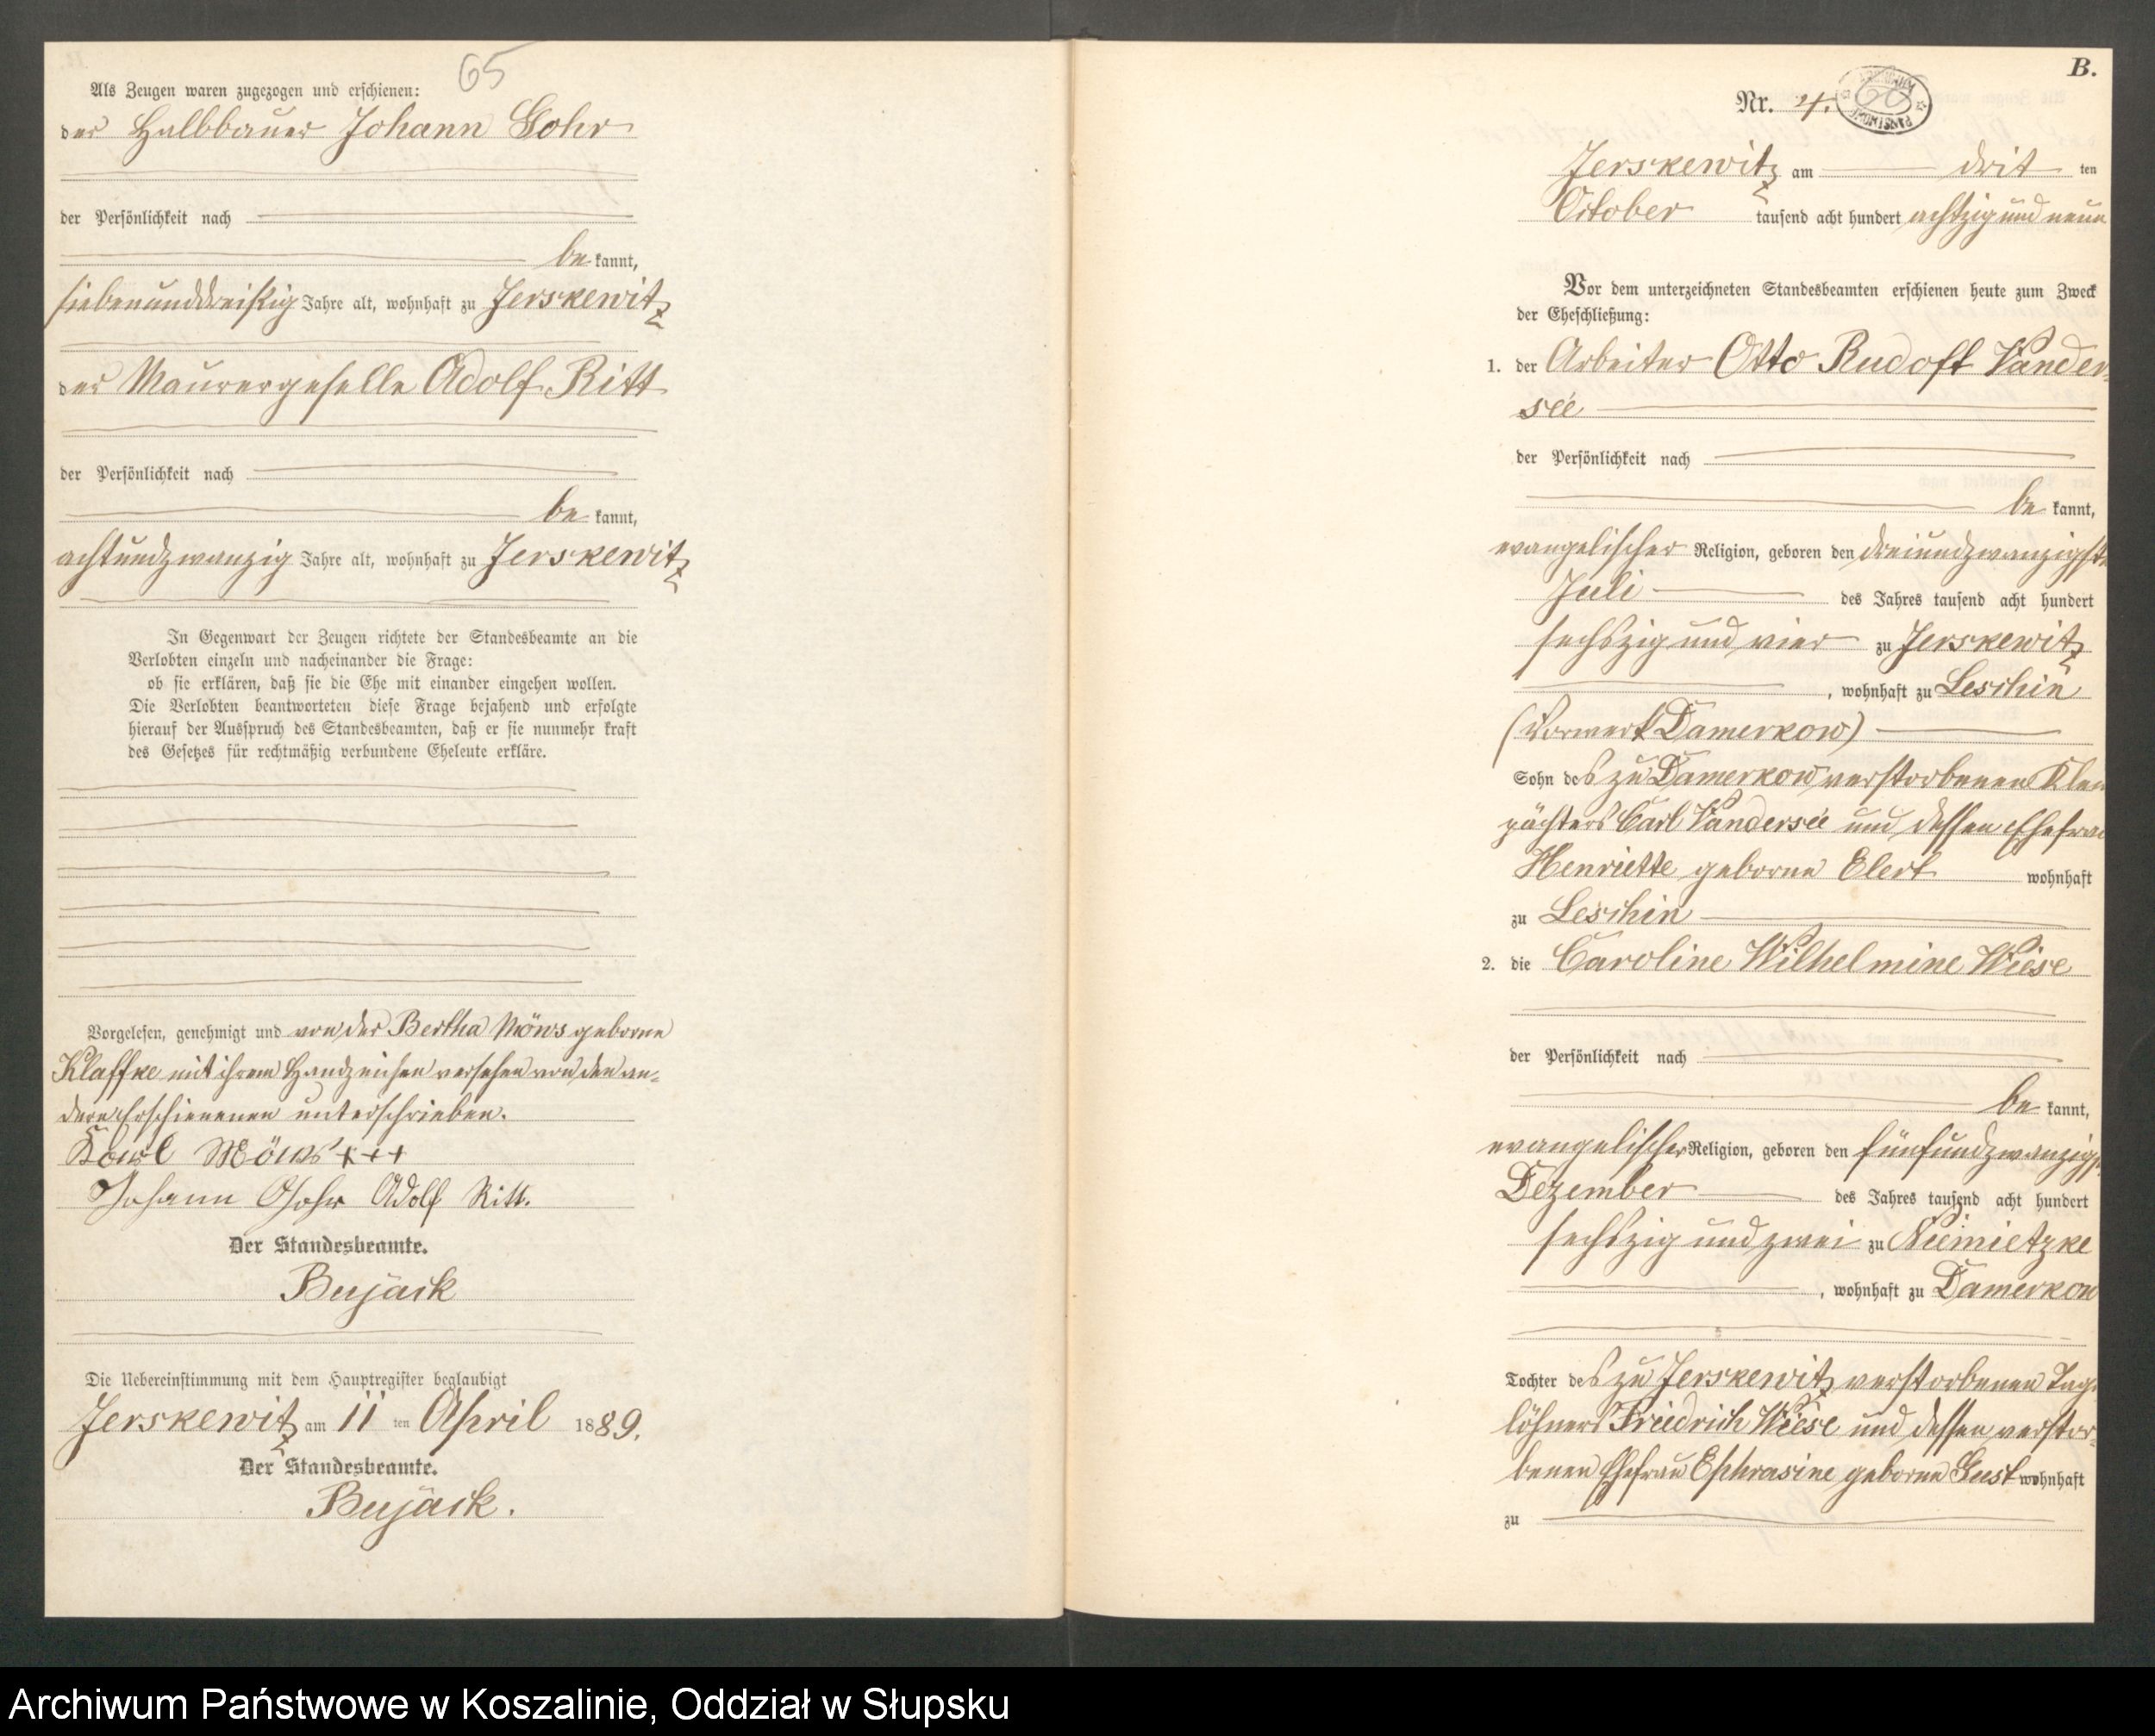 65
Als Zeugen waren zugezogen und erschienen:
der Halbbauer Johann Gohr
der Persönlichkeit nach
be kannt,
siebenunddreißig Jahre alt, wohnhaft zu Jerskewitz
der Maurergeselle Adolf Ritt
der Persönlichkeit nach
be kannt,
achtundzwanzig Jahre alt, wohnhaft zu Jerskewitz
In Gegenwart der Zeugen richtete der Standesbeamte an die
Verlobten einzeln und nacheinander die Frage:
ob sie erklären, daß sie die Ehe mit einander eingehen wollen.
Die Verlobten beantworteten diese Frage bejahend und erfolgte
hierauf der Ausspruch des Standesbeamten, daß er sie nunmehr kraft
des Gesetzes für rechtmäßig verbundene Eheleute erkläre.
Vorgelesen, genehmigt und von der Bertha Möws geborne
Klaffke mit ihrem Handzeichen versehen von den an-
dern Erschienenen unterschrieben.
Karl Möws +++
Johann Gohr Adolf Ritt.
Der Standesbeamte.
Bujack
Die Uebereinstimmung mit dem Hauptregister beglaubigt
Jerskewitz am 11 ten April 1889.
Der Standesbeamte.
Bujack.
B.
Nr. 4.
Jerskewitz am drit ten
October tausend acht hundert achtzig und neun
Vor dem unterzeichneten Standesbeamten erschienen heute zum Zweck
der Eheschließung:
1. der Arbeiter Otto Rudolf Vander-
see
der Persönlichkeit nach
be kannt,
evangelischer Religion, geboren den dreiundzwanzigsten
Juli des Jahres tausend acht hundert
sechszig und vier zu Jerskewitz
, wohnhaft zu Leschin
(Vorwerk Damerkow)
Sohn des zu Damerkow verstorbenen Klein
pächters Carl Vandersee und dessen Ehefrau
Henriette geborne Elert wohnhaft
zu Leschin
2. die Caroline Wilhelmine Wiese
der Persönlichkeit nach
be kannt,
evangelischer Religion, geboren den fünfundzwanzigst
Dezember des Jahres tausend acht hundert
sechszig und zwei zu Niemietzke
, wohnhaft zu Damerkow
Tochter des zu Jerskewitz verstorbenen Tage
löhners Friedrich Wiese und dessen verstor-
benen Ehefrau Ephrasine geborne Gust wohnhaft
zu
Archiwum Państwowe w Koszalinie, Oddział w Słupsku